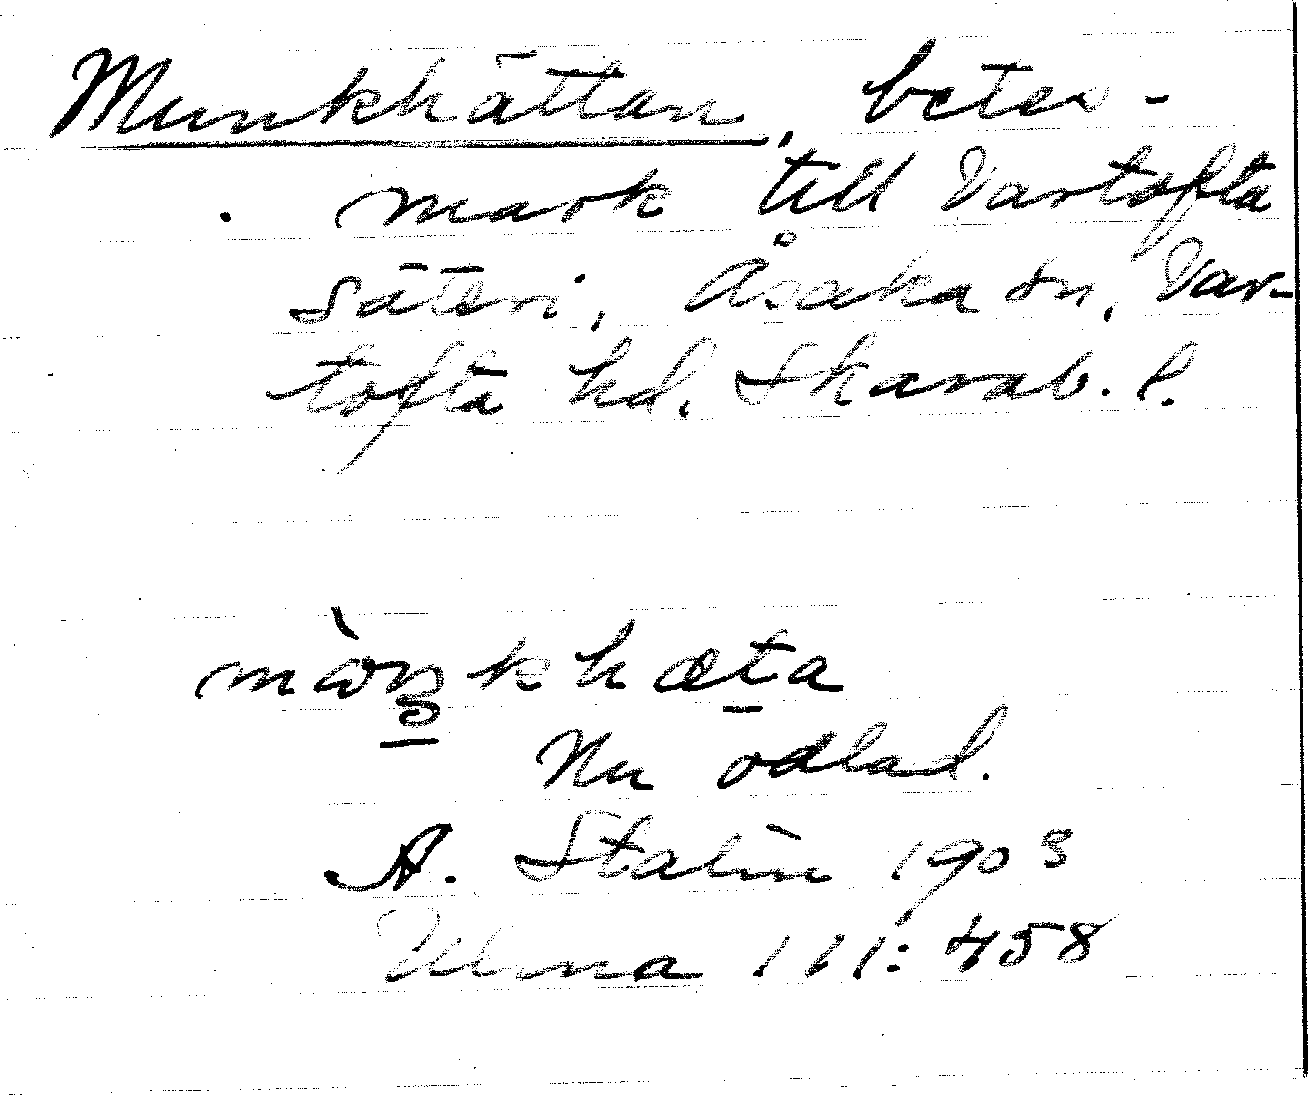 Munkhättan, betes-
mark till Vartofta
säteri, Åsaka sn, Var-
tofta hd. Skarab. l.
Nu odlad.
A. Stalin 1903
Ulma 111:458